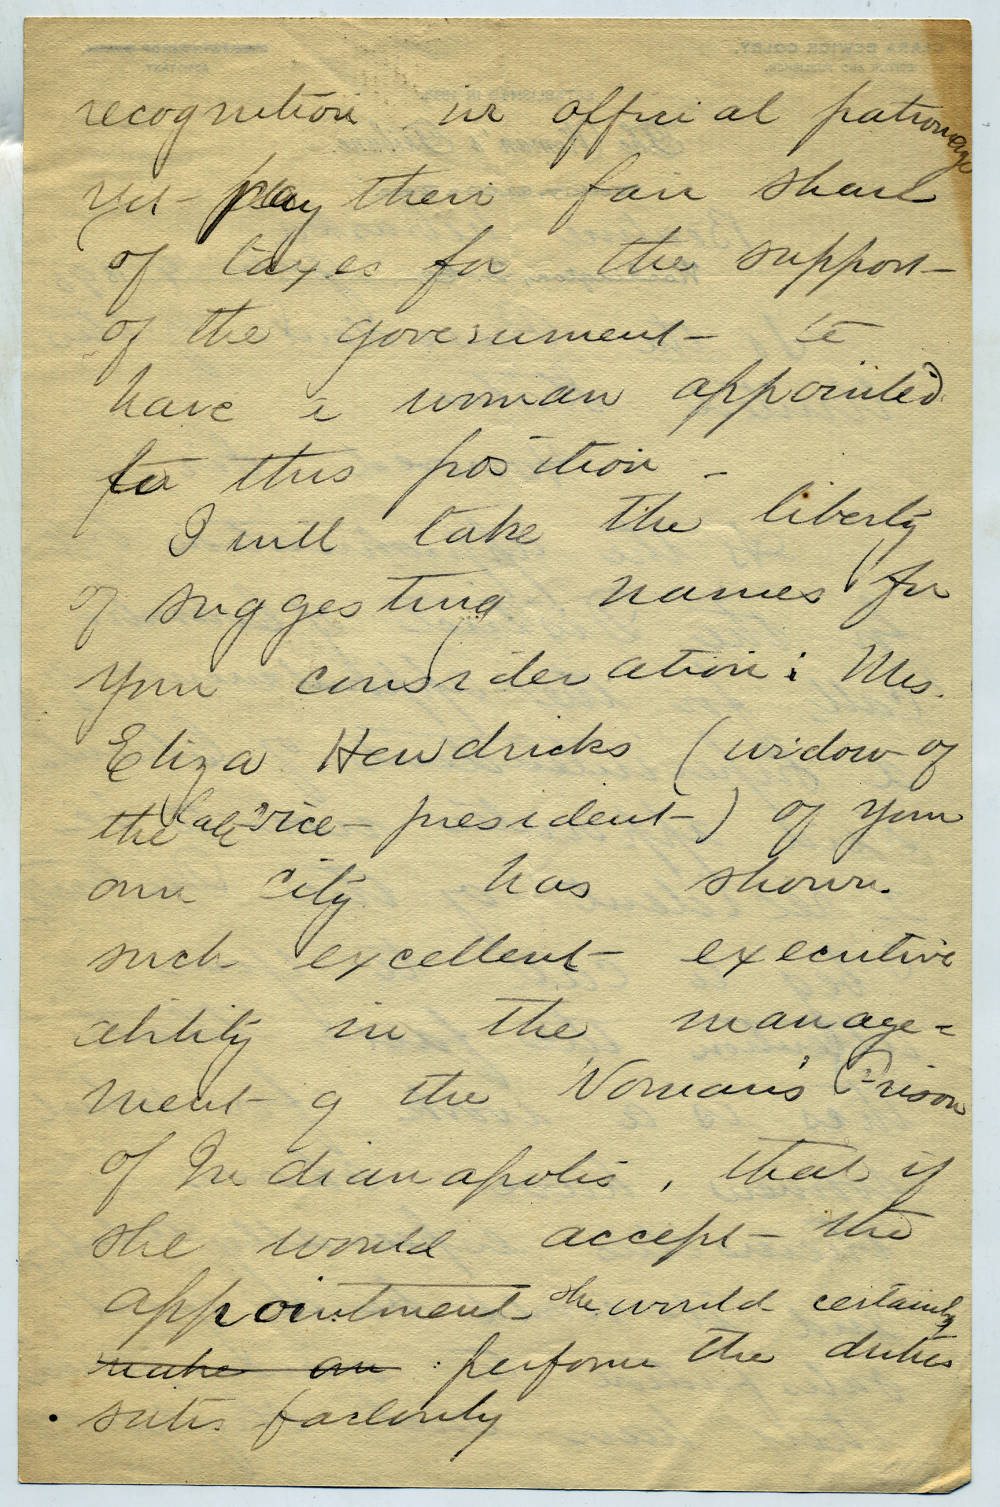 recognition in official patronage
yet pay their fair share
of taxes for the support
of the government - to
have a woman appointed
for this position -
I will take the liberty
of suggesting names for
your consideration: Mrs.
Eliza Hendricks (widow of
the late vice-president) of your
own city has shown
such excellent executive
ability in the manage-
ment of the Woman's Prison
of Indianapolis, that if
she would accept the
appointment she would certainly
make an perform the duties
satisfactorily